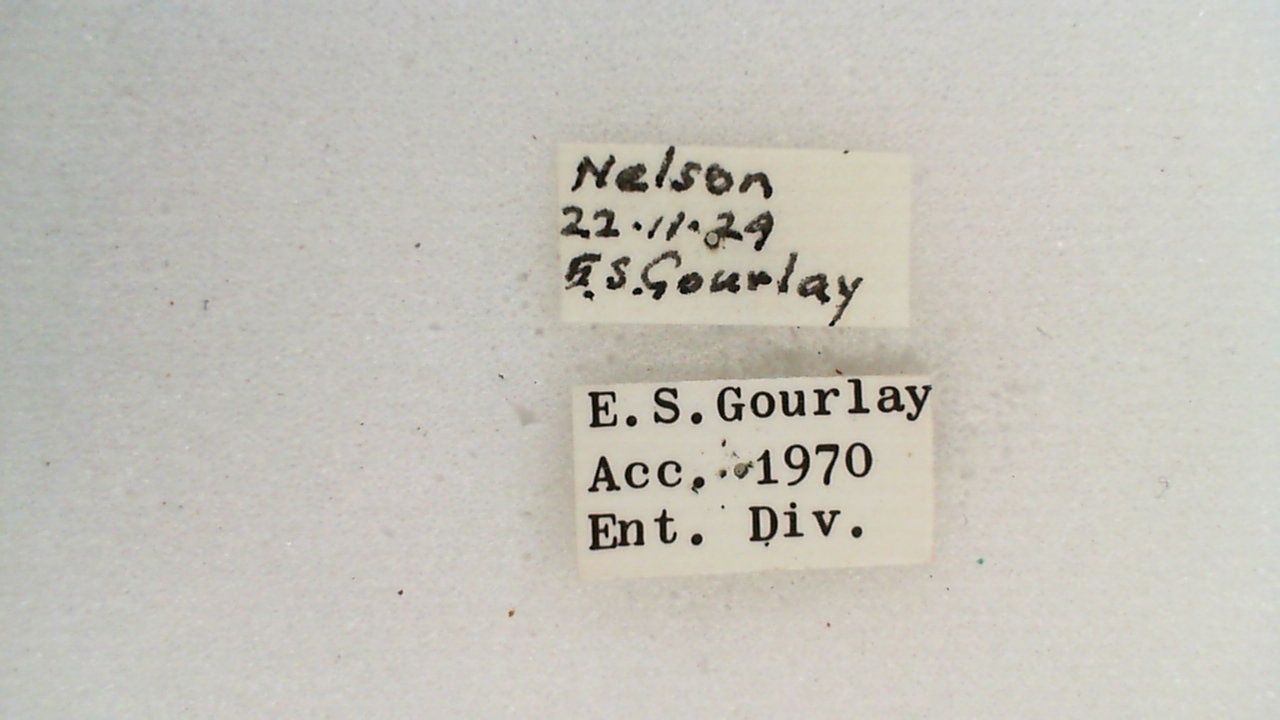 Nelson
22.11.29
E.S.Gourlay
E.S.Gourlay
Acc. 1970
Ent. Div.